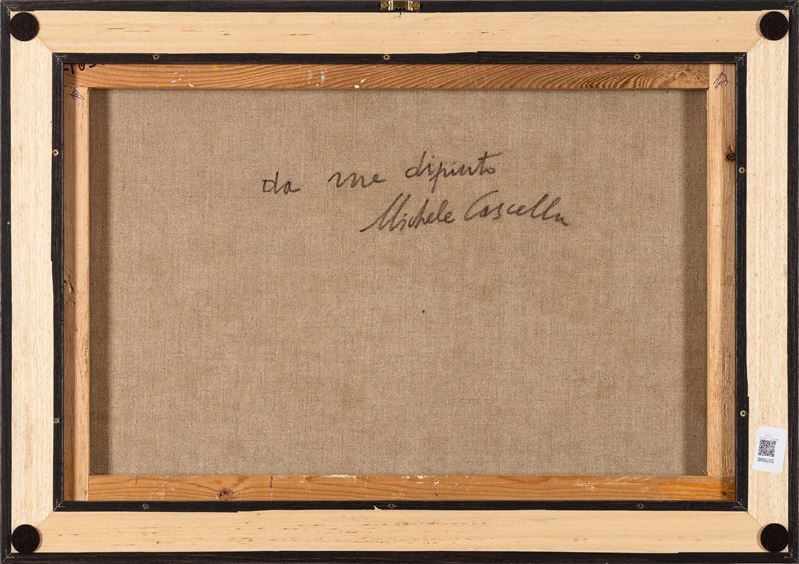 da me dipinto
Michele Cascella